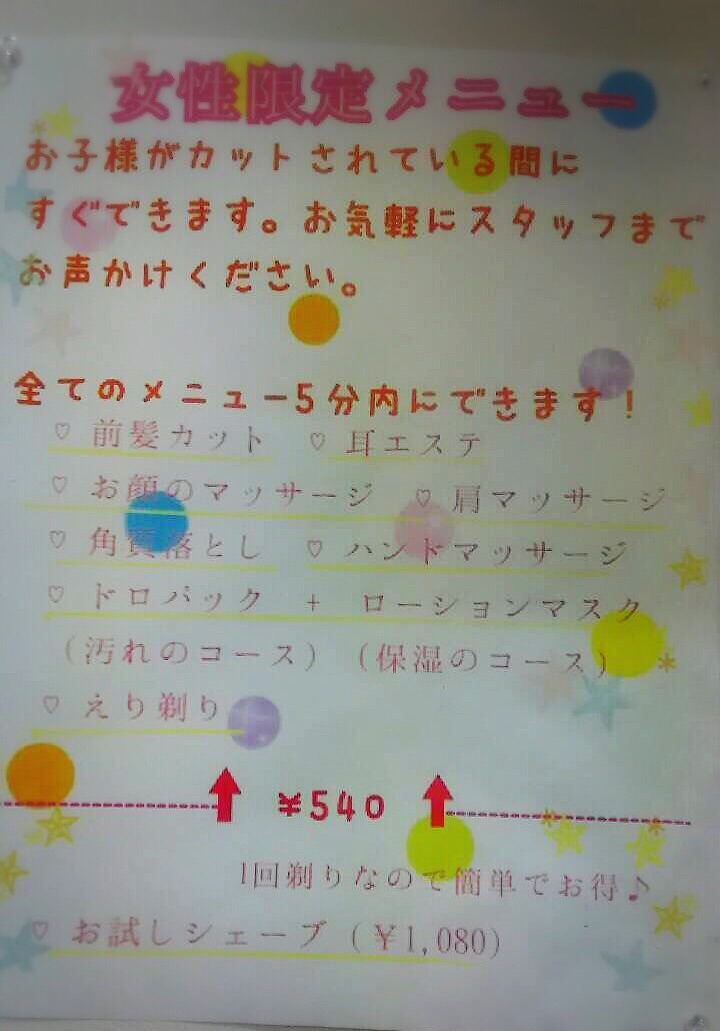 女性限定メニュー
お子様がカットされている間に
すぐできます。お気軽にスタッフまで
お声かけください。
全てのメニュー5分内にできます！
♡ 前髪カット ♡ 耳エステ
♡ お顔のマッサージ ♡ 肩マッサージ
♡ 角質落とし ♡ ハンドマッサージ
♡ ドロパック + ローションマスク
（汚れのコース）（保湿のコース）
♡ えり剃り
¥540
1回剃りなので簡単でお得♪
♡ お試しシェーブ（￥1,080）